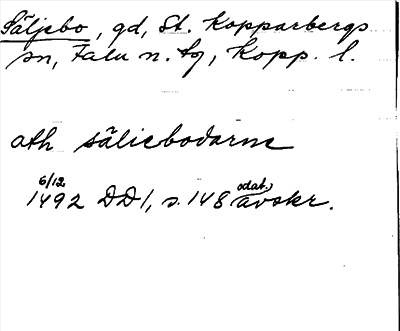 Säljebo, gd, St. Kopparbergs
sn, Falu n. tg, Kopp. l.
ath säliebodarne
6/12
1492 DD1, s. 148 odat. avskr.